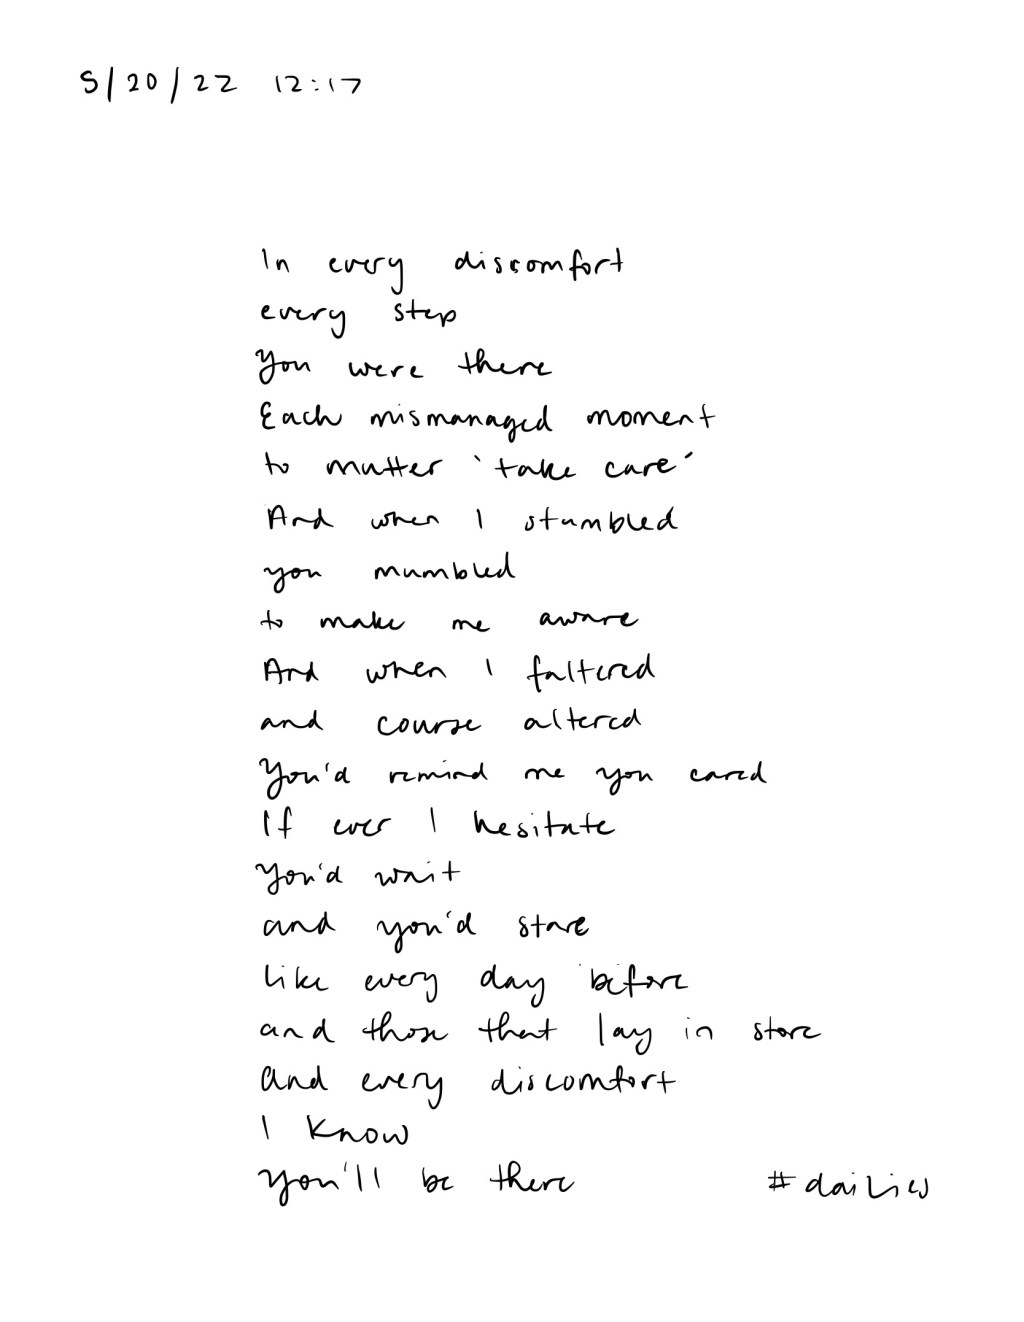 5/20/22 12:17
In every discomfort
every step
You were there
Each mismanaged moment
to mutter 'take care'
And when I stumbled
you mumbled
to make me aware
And when I faltered
and course altered
You'd remind me you cared
If ever I hesitate
You'd wait
and you'd stare
like every day before
and those that lay in store
And every discomfort
I know
you'll be there
#dailies